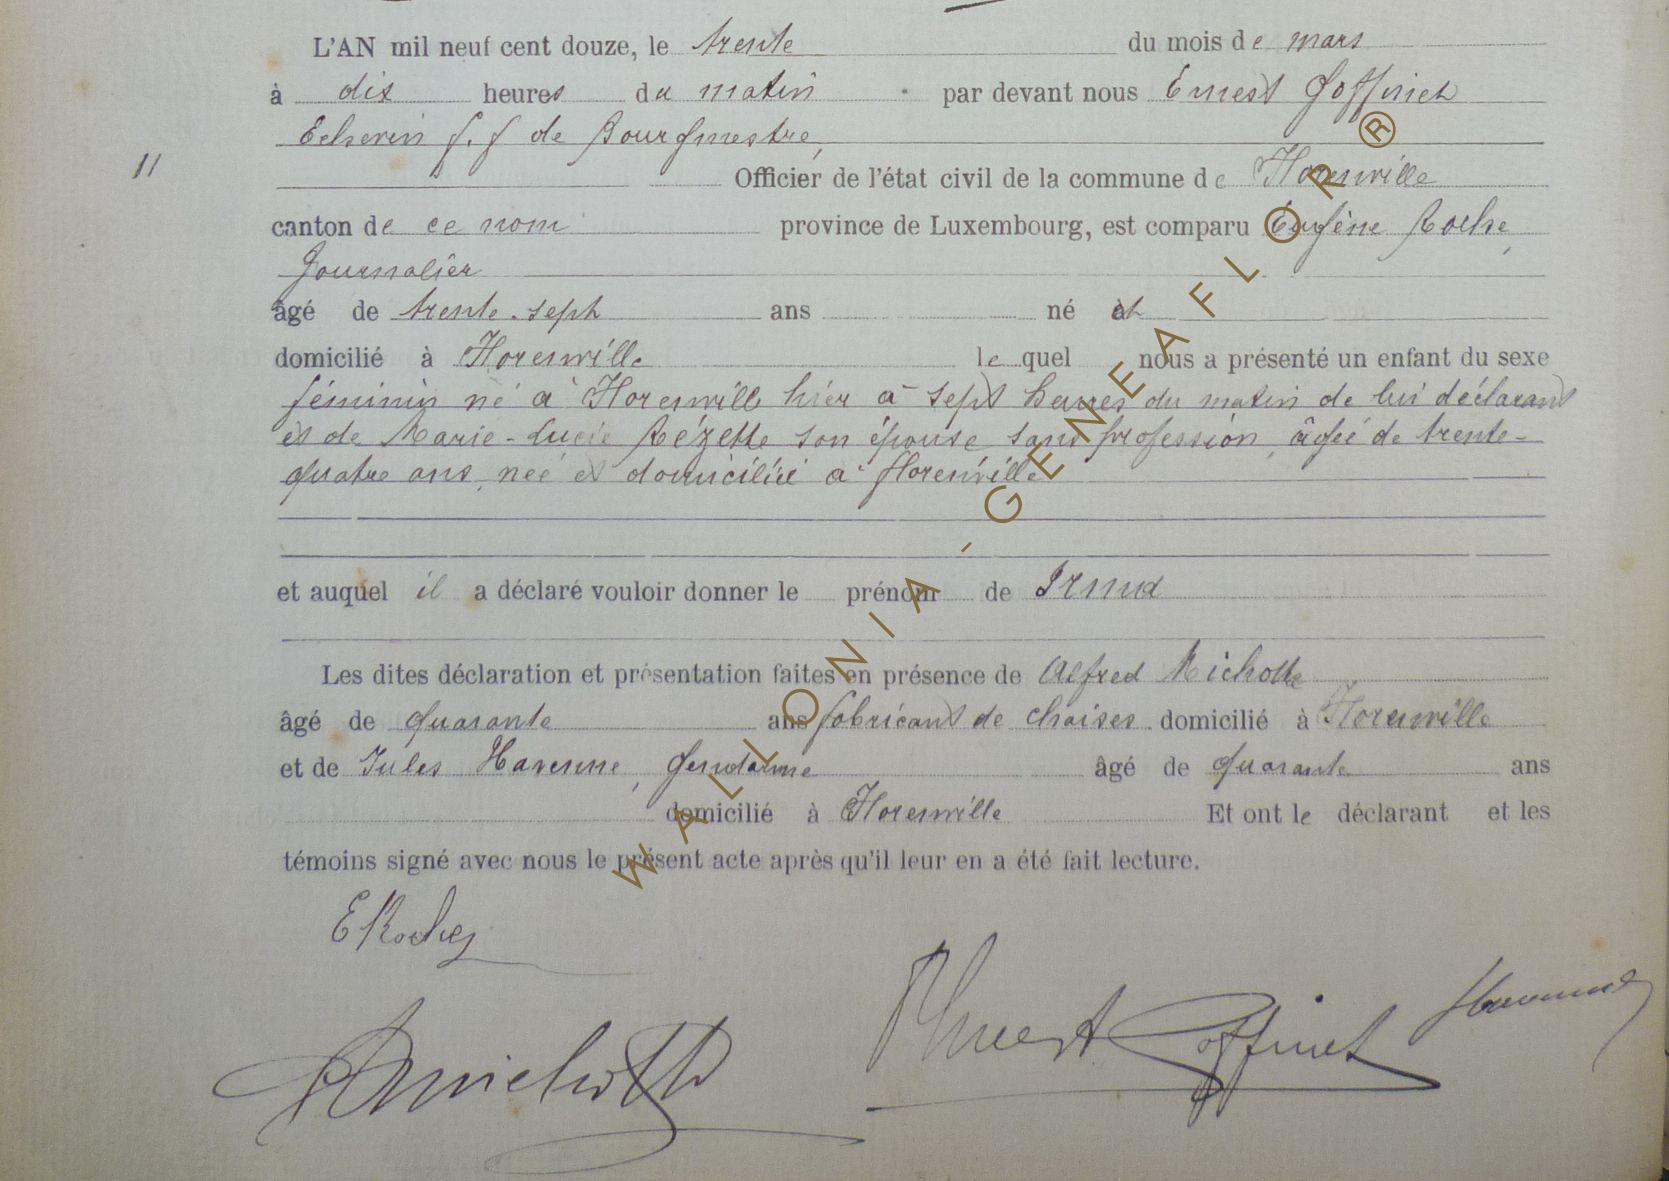 L'AN mil neuf cent douze, le trente du mois de mars
à dix heures du matin par devant nous Ernest Goffinet
Echevin f.f de Bourgmestre,
11
Officier de l'état civil de la commune de Florenville
canton de ce nom province de Luxembourg, est comparu Eugène Roche,
Journalier
âgé de trente-sept ans né et
domicilié à Florenville lequel nous a présenté un enfant du sexe
féminin né à Florenville hier à sept heures du matin de lui déclarant
et de Marie-Lucie Rézette son épouse sans profession, âgée de trente-
quatre ans, née et domiciliée à Florenville
et auquel il a déclaré vouloir donner le prénom de Irma
Les dites déclaration et présentation faites en présence de Alfred Michotte
âgé de quarante ans fabricant de chaises domicilié à Florenville
et de Jules Havenne, gendarme âgé de quarante ans
domicilié à Florenville Et ont le déclarant et les
témoins signé avec nous le présent acte après qu'il leur en a été fait lecture.
E Roche
AMichotte
Ernest Goffinet
Havenne
WALLONIA - GENEAFLOR ®